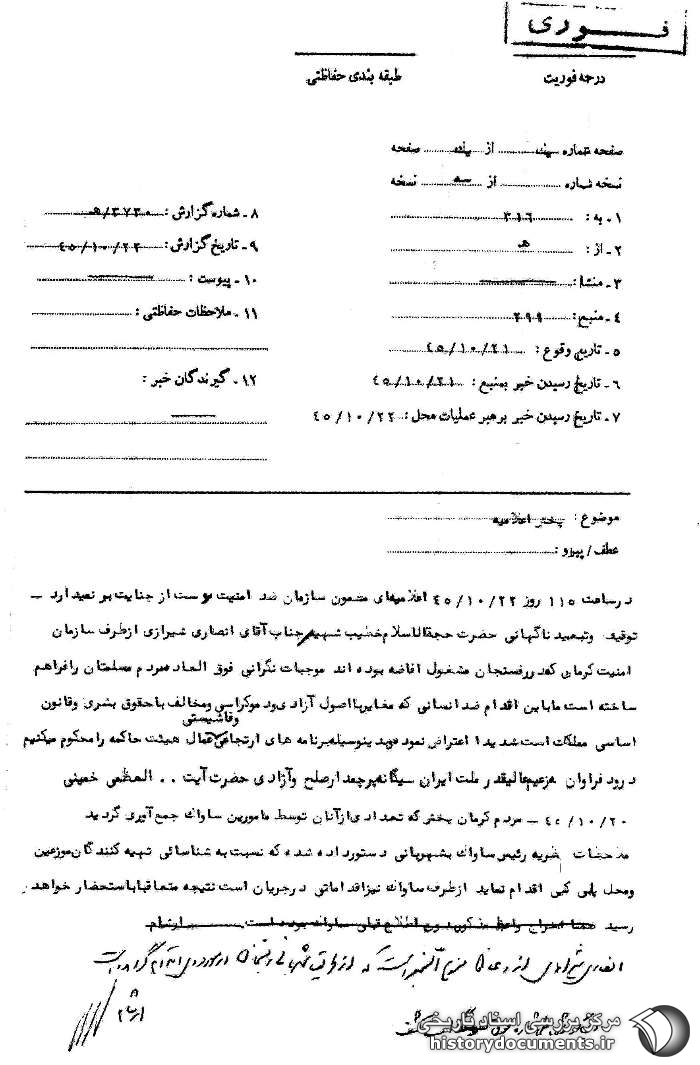 فـــوری
درجه فوریت
طبقه بندی حفاظتی
صفحه شماره یک از یک صفحه
نسخه شماره از سه نسخه
۱ـ به : ۳۱۶
۲ـ از : هـ
۳ـ منشأ :
۴ـ منبع : ۲۹۹
۵ـ تاریخ وقوع : ۴۵/۱۰/۲۱
۶ـ تاریخ رسیدن خبر بمنبع : ۴۵/۱۰/۲۱
۷ـ تاریخ رسیدن خبر برهبر عملیات محل : ۴۵/۱۰/۲۲
۸ـ شماره گزارش : ۳۷۳۰/هـ
۹ـ تاریخ گزارش : ۴۵/۱۰/۲۲
۱۰ـ پیوست :
۱۱ـ ملاحظات حفاظتی :
۱۲ـ گیرندگان خبر :
موضوع : پخش اعلامیه
عطف/پیرو :
درساعت ۱۱۵ روز ۴۵/۱۰/۲۲ اعلامیه‌ای مضمون سازمان ضد امنیت دست از جنایت بر نمیدارد ـ
توقیف وتبعید ناگهانی حضرت حجةالاسلام خطیب شهیر جناب آقای انصاری شیرازی ازطرف سازمان
امنیت کرمان که در رفسنجان مشغول افاضه بوده اند موجبات نگرانی فوق العاده مردم مسلمان رافراهم
ساخته است مابا این اقدام ضد انسانی که مغایر بااصول آزادی ودموکراسی ومخالف با حقوق بشری وقانون
اساسی مملکت است شدیدا اعتراض نموده وبدینوسیله برنامه های ارتجاعی وفاشیستی عمال هیئت حاکمه را محکوم میکنیم
درود فراوان به زعیم عالیقدر ملت ایران یگانه پرچمدار صلح وآزادی حضرت آیت .. العظمی خمینی
۴۵/۱۰/۲۰ ـ مردم کرمان پخش که تعدادی ازآنان توسط مامورین ساواک جمع آوری گردید
ملاحظات نظریه رئیس ساواک بشهربانی دستور داده شده که نسبت به شناسائی تهیه کنندگان موزعین
ومحل پلی کپی اقدام نماید ازطرف ساواک نیز اقداماتی درجریان است نتیجه متعاقبا باستحضار خواهد
رسید
مرکز بررسی اسناد تاریخی
historydocuments.ir